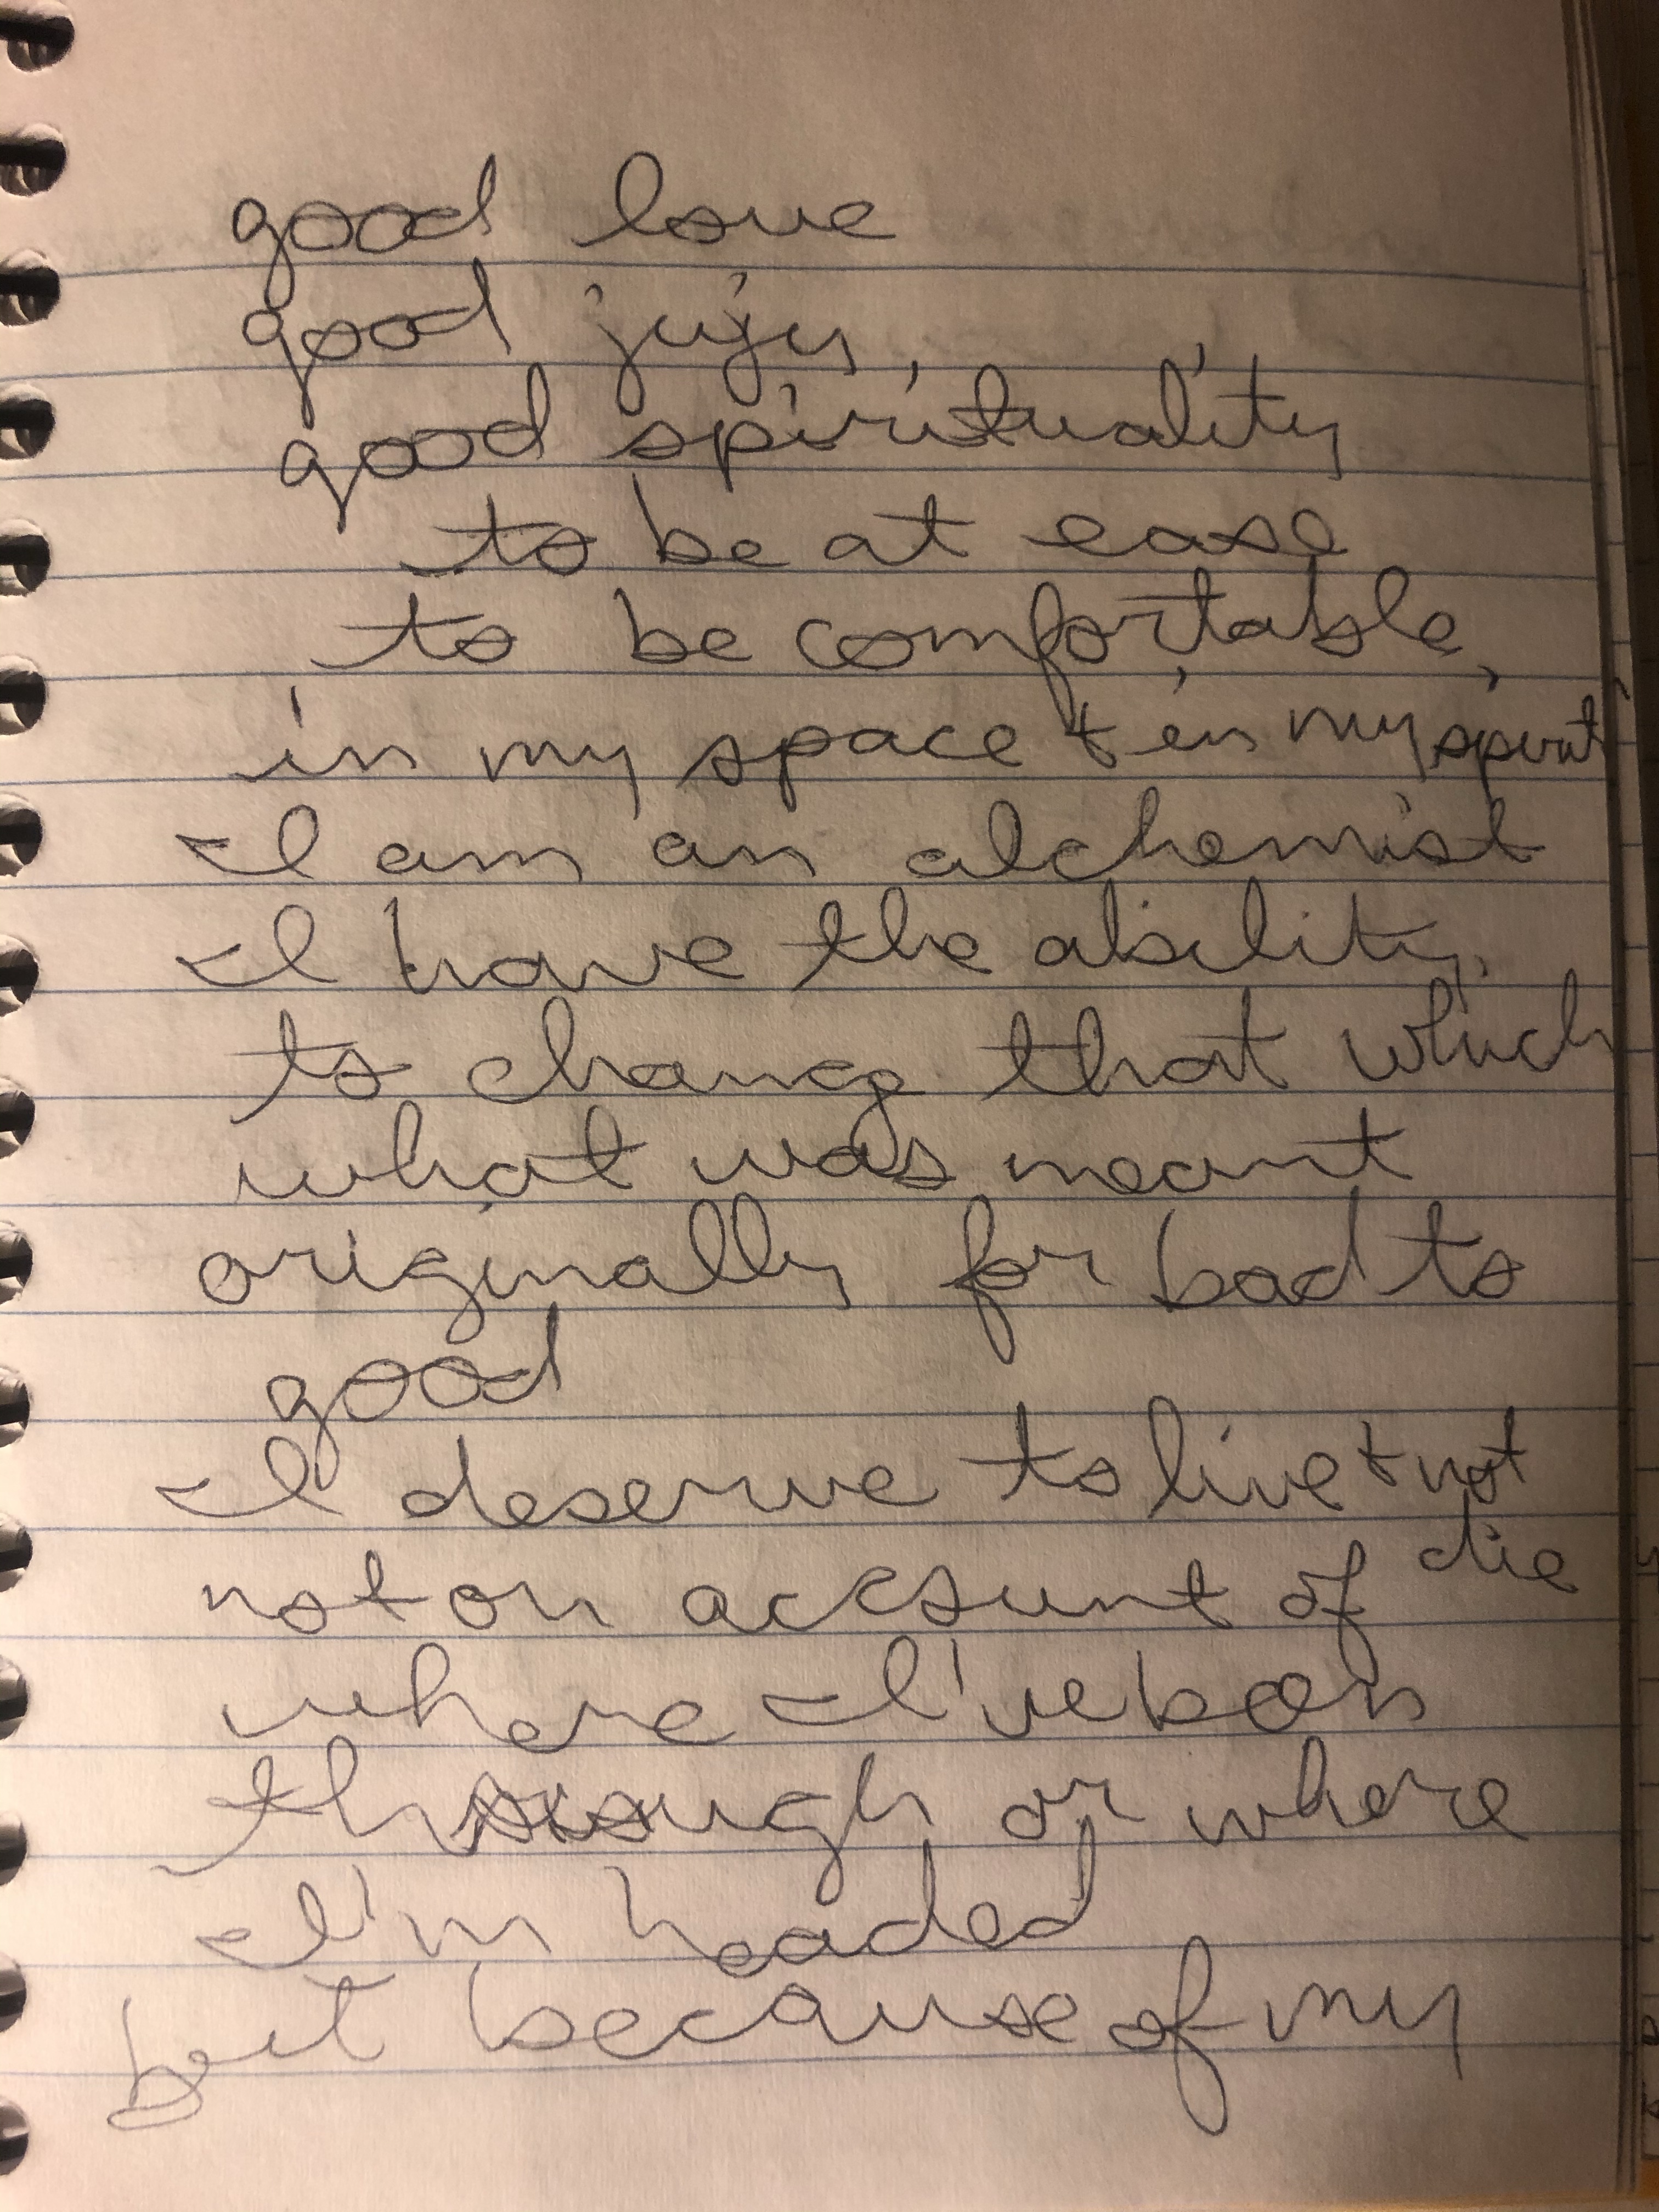 good love
good juju
good spirituality
to be at ease
to be comfortable,
in my space & in my spirit
I am an alchemist
I have the ability
to change that which
what was meant
originally for bad to
good
I deserve to live & not
die
not on account of
where I've been
through or where
I'm headed
but because of my